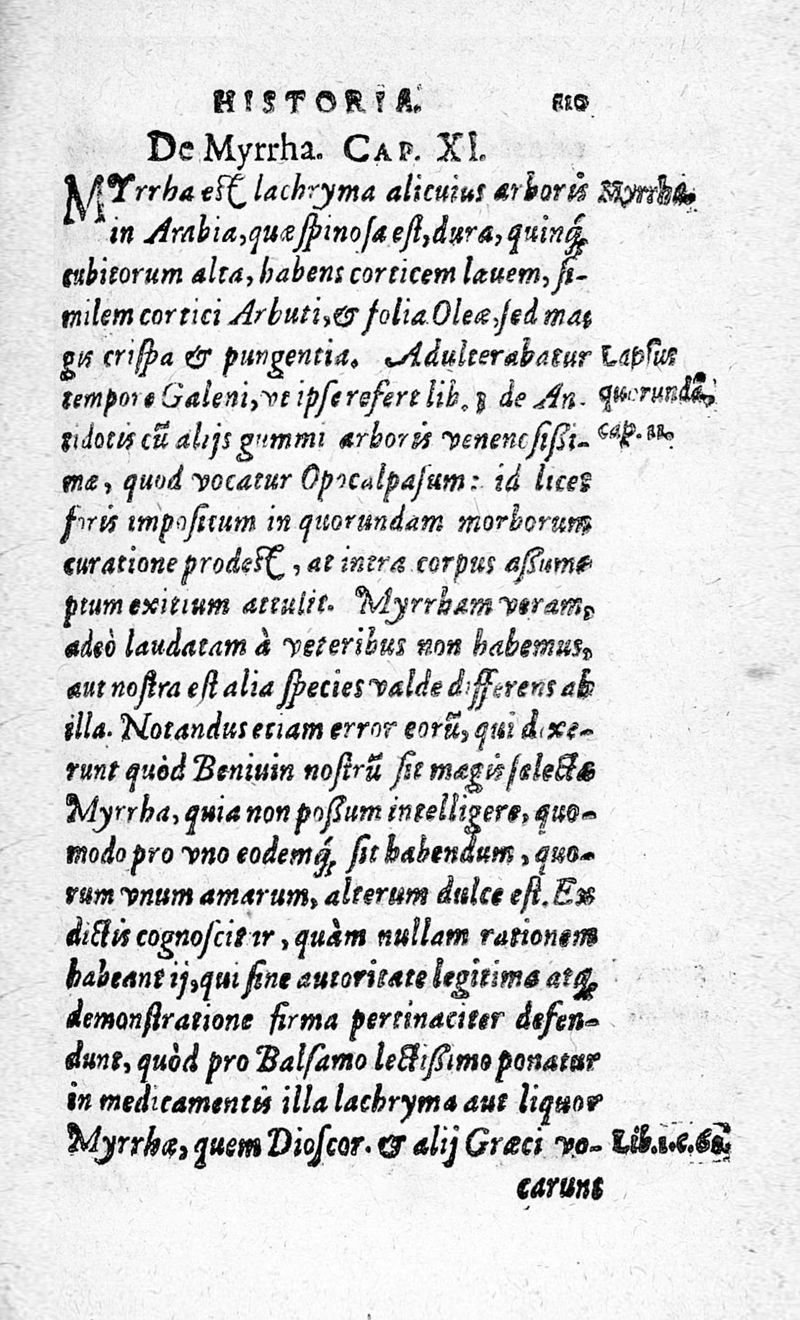 HISTORIA.
De Myrrha. CAP. XI.
MYrrha est lachryma alicuius arboris Myrrha.
in Arabia, quæ spinosa est, dura, quinq́;
cubitorum alta, habens corticem lævem, si-
milem cortici Arbuti, & folia Oleæ, sed ma-
gis crispa & pungentia. Adulterabatur Lapsus
tempore Galeni, vt ipse refert lib. de An- quorundã.
tidotis cũ alijs gummi arboris venenosissi- cap. 11.
mæ, quod vocatur Opocalpasum: id licet
foris impositum in quorundam morborum
curatione prodest, at intra corpus assum-
ptum exitium attulit. Myrrham veram,
adeò laudatam à veteribus non habemus,
aut nostra est alia species valde differens ab
illa. Notandus etiam error eorũ, qui dixe-
runt quòd Beniuin nostrũ sit magis selecta
Myrrha, quia non possum intelligere, quo-
modo pro vno eodemq́; sit habendum, quo-
rum vnum amarum, alterum dulce est. Ex
dictis cognoscitur, quàm nullam rationem
habeant ij, qui sine autoritate legitima atq;
demonstratione firma pertinaciter defen-
dunt, quòd pro Balsamo lectissimo ponatur
in medicamentis illa lachryma aut liquor
Myrrhæ, quem Dioscor. & alij Græci vo- Lib.1.c.
carunt